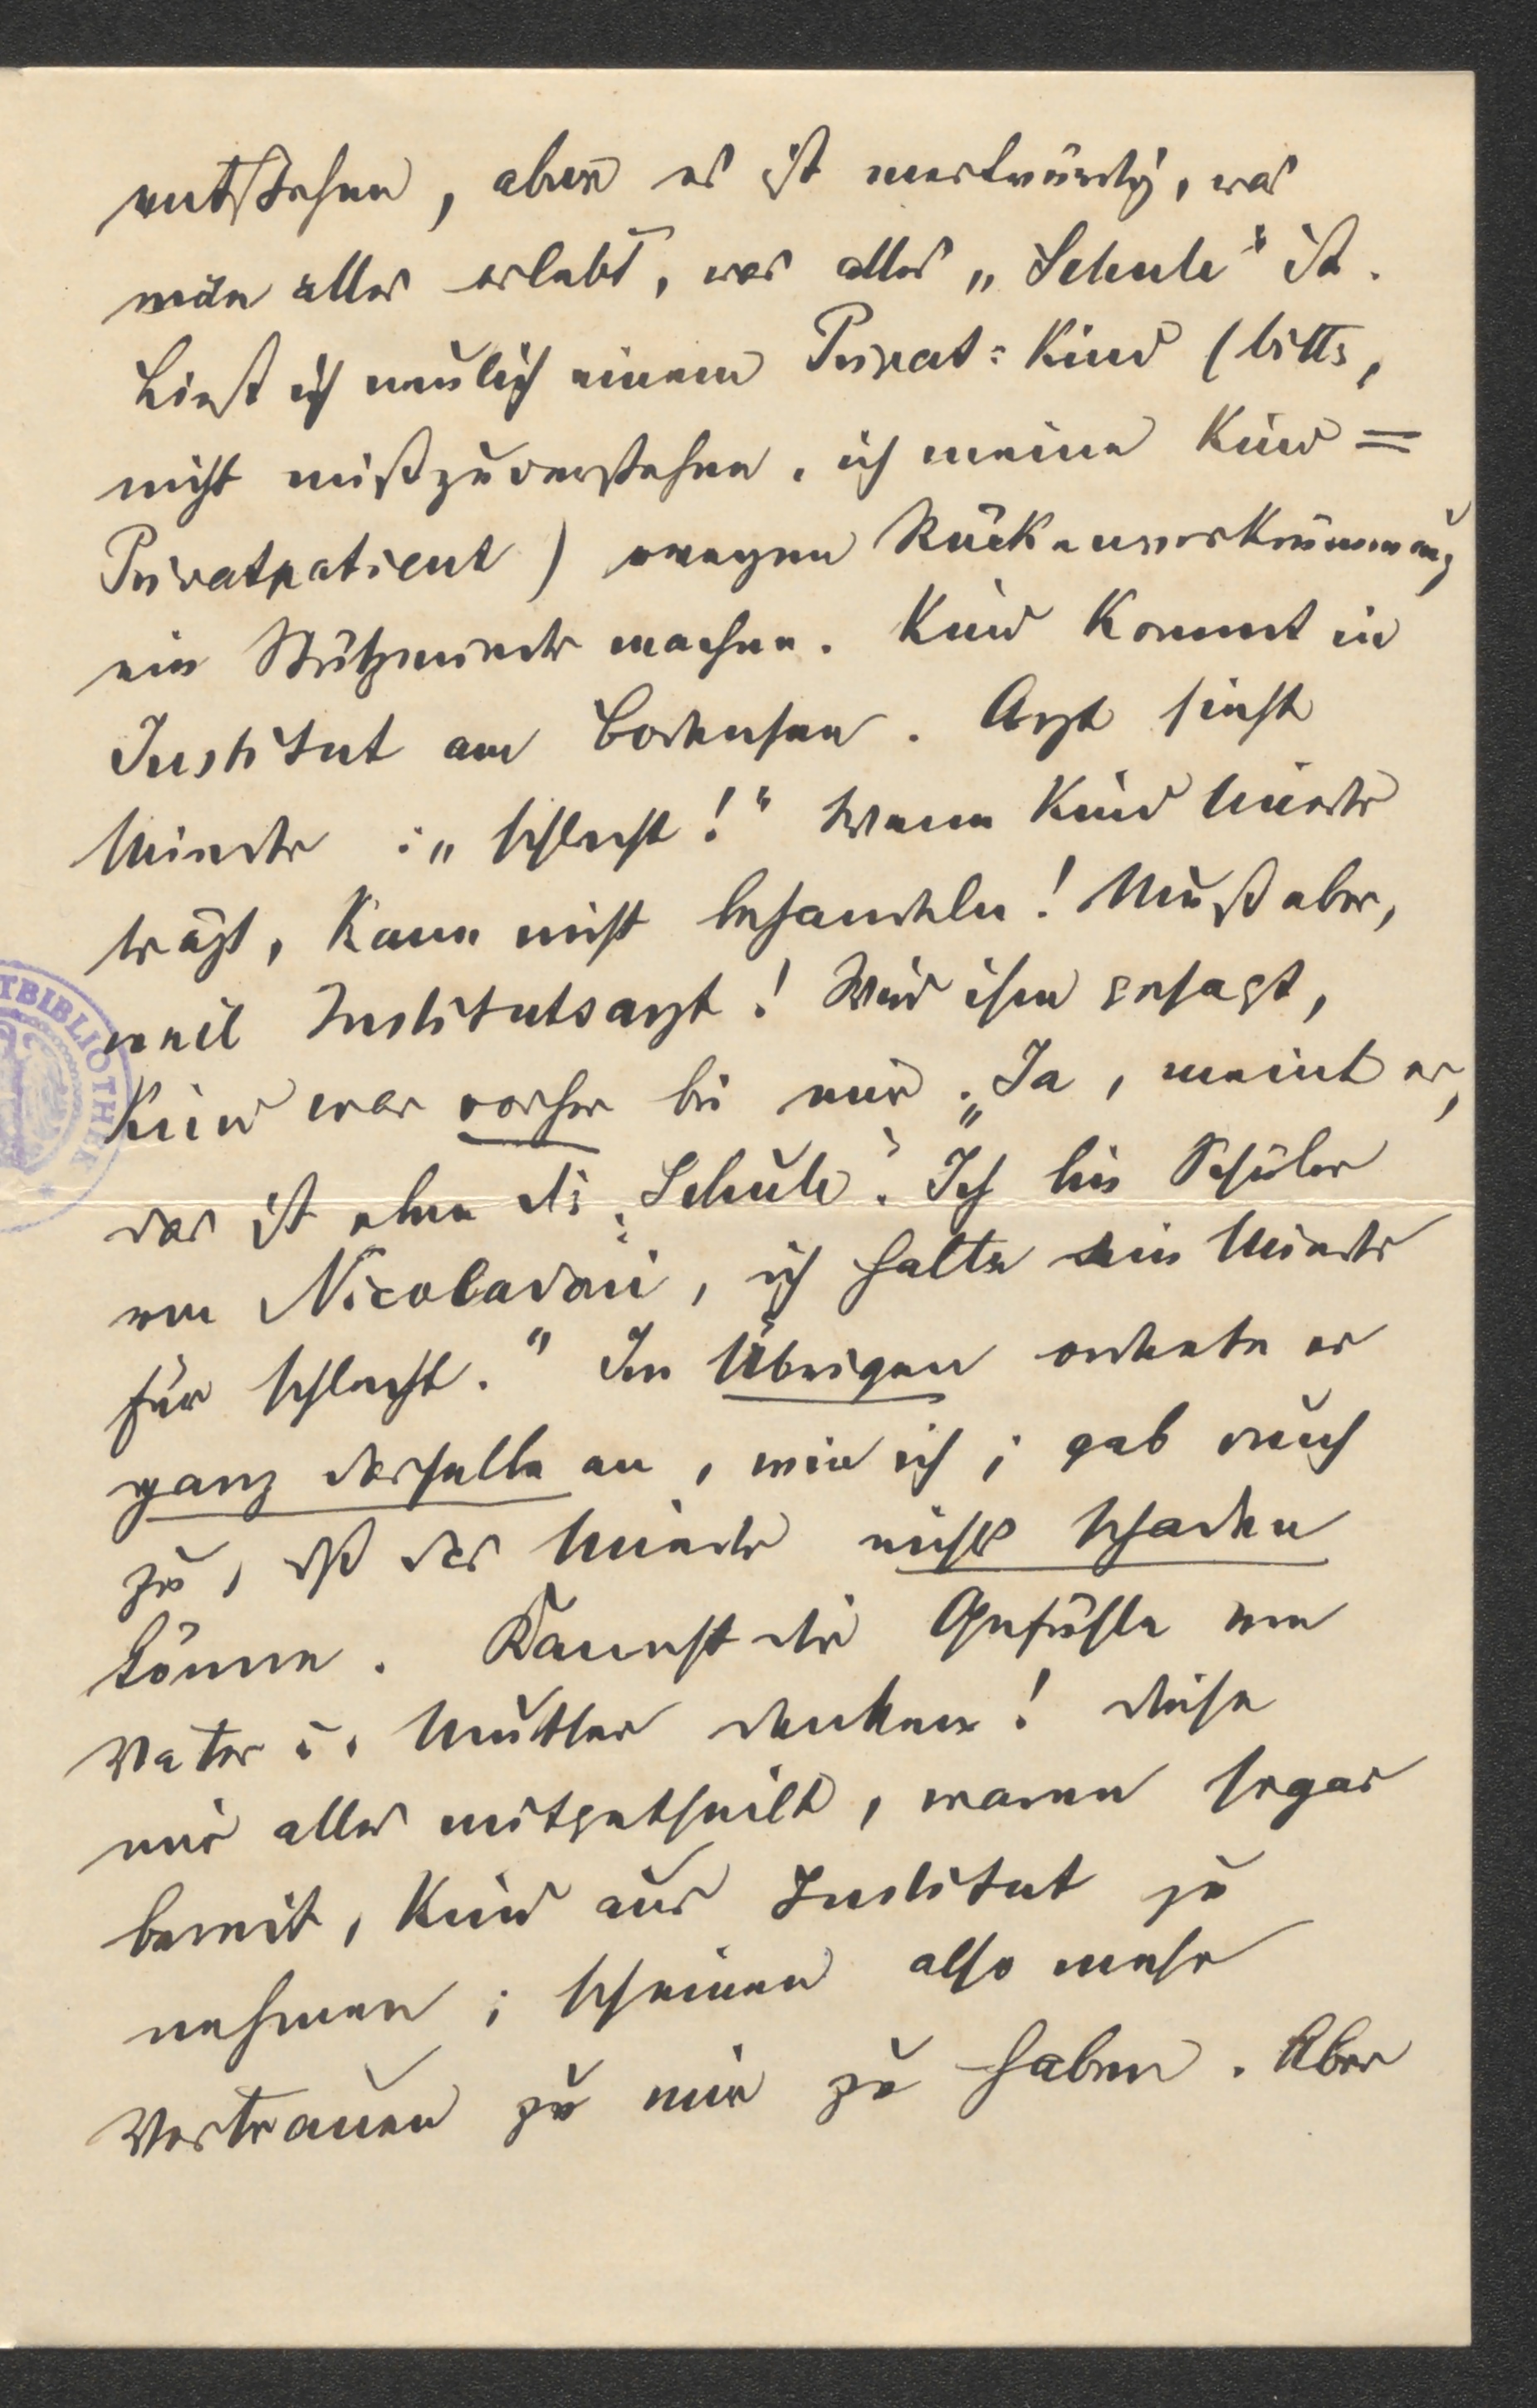 entstehen, aber es ist merkwürdig, was
man alles erlebt, was alles „Schule“ ist.
Ließ ich neulich einem Privat-Kind (bitte,
nicht mißzuverstehen, ich meine Kind=
Privatpatient) wegen Rückenverkrümmung
ein Stützmieder machen. Kind kommt in
Institut am Bodensee. Arzt sieht
Mieder: „schlecht!“ Wenn Kind Mieder
trägt, kann nicht behandeln! Muß aber,
weil Institutsarzt! Wird ihm gesagt,
Kind war vorher bei mir. „Ja, meint er,
das ist eben die „Schule“. Ich bin Schüler
von Nicoladoni, ich halte ein Mieder
für schlecht.“ Im Übrigen ordnete er
ganz dasselbe an, wie ich; gab auch
zu, daß das Mieder nichts schaden
könne. Kannst die Gefühle von
Vater u. Mutter denken! Diese
mir alles mitgetheilt, waren sogar
bereit, Kind aus Institut zu
nehmen; scheinen also mehr
Vertrauen zu mir zu haben. Aber
TBIBLIOTHEK